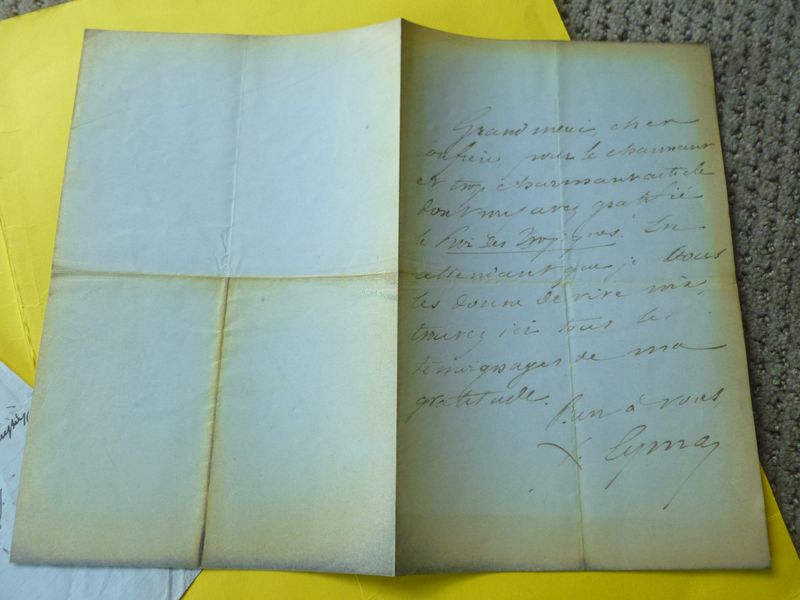 Grand merci, cher
confrère pour le charmant
et trop charmant article
dont vous avez gratifié
le Roi des Tropiques. En
attendant que je vous
les donne de vive voix,
trouvez ici tous les
témoignages de ma
gratitude.
Bien à vous